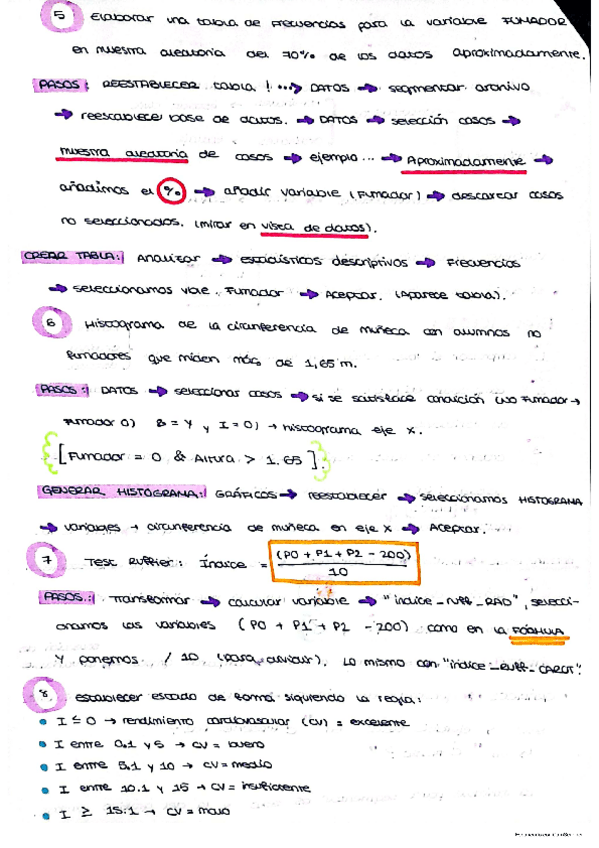 5 Elaborar una tabla de frecuencias para la variable FUMADOR
en muestra aleatoria del 70% de los datos aproximadamente.
PASOS: REESTABLECER tabla! ...→ DATOS → segmentar archivo
→ reestablecer base de datos. → DATOS → selección casos →
muestra aleatoria de casos → ejemplo... → Aproximadamente →
añadimos el % → añadir variable (Fumador) → descartar casos
no seleccionados. (mirar en vista de datos).
CREAR TABLA: Analizar → estadísticos descriptivos → Frecuencias
→ seleccionamos vble. Fumador → Aceptar. (Aparece tabla).
6 Histograma de la circunferencia de muñeca con alumnos no
fumadores que miden más de 1,65 m.
PASOS: DATOS → seleccionar casos → si se satisface condición (no Fumador →
Fumador 0) & = Y y I = 0) → histograma eje x.
[Fumador = 0 & Altura > 1.65].
GENERAR HISTOGRAMA: GRÁFICOS → reestablecer → seleccionamos HISTOGRAMA
→ variables → circunferencia de muñeca en eje x → Aceptar.
7 Test Ruffier: Índice = (P0 + P1 + P2 - 200) / 10
PASOS: Transformar → calcular variable → "indice_ruff_RAD", selecci-
onamos las variables (P0 + P1 + P2 - 200) como en la FÓRMULA
y ponemos / 10 (para dividir). Lo mismo con "indice_ruff_CAROT".
8 establecer estado de forma siguiendo la regla:
• I ≤ 0 → rendimiento cardiovascular (CV) = excelente
• I entre 0.1 y 5 → CV = bueno
• I entre 5.1 y 10 → CV = medio
• I entre 10.1 y 15 → CV = insuficiente
• I ≥ 15.1 → CV = malo